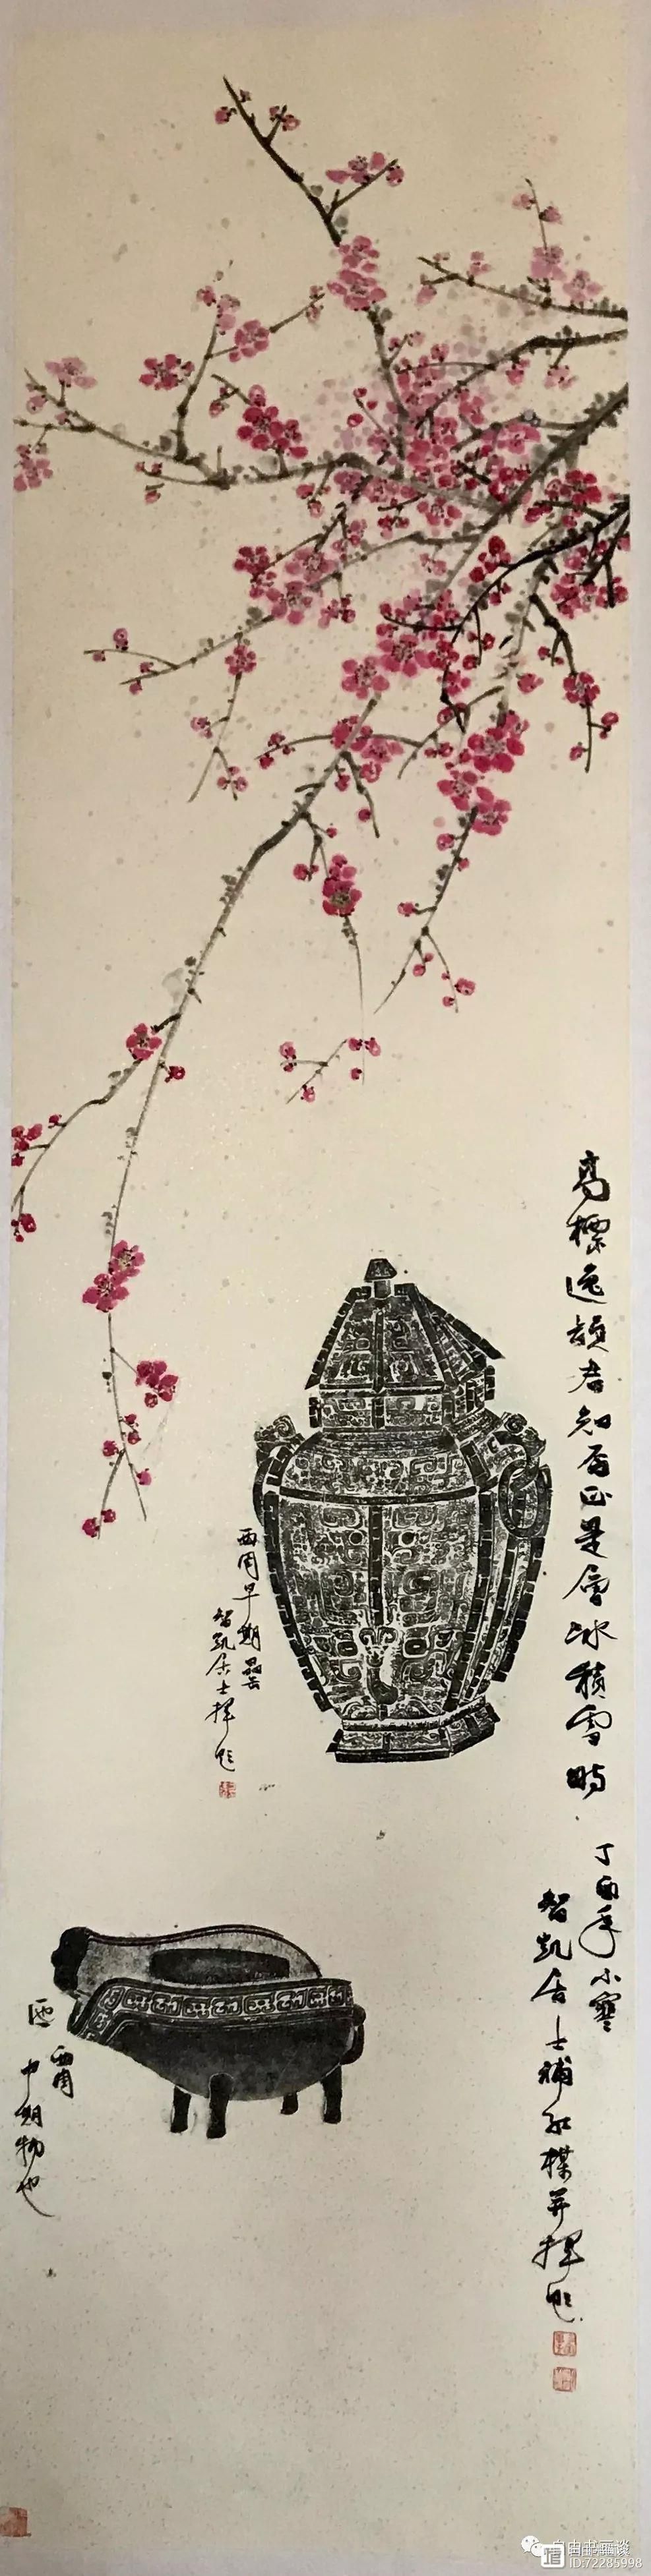 高標逸韻君知否正是層冰積雪時
丁酉年小寒
智凱居士補紅楳并揮
西周早期罍
智凱居士揮
匜
西周
中期物也
自由书画谈
ID:72285998